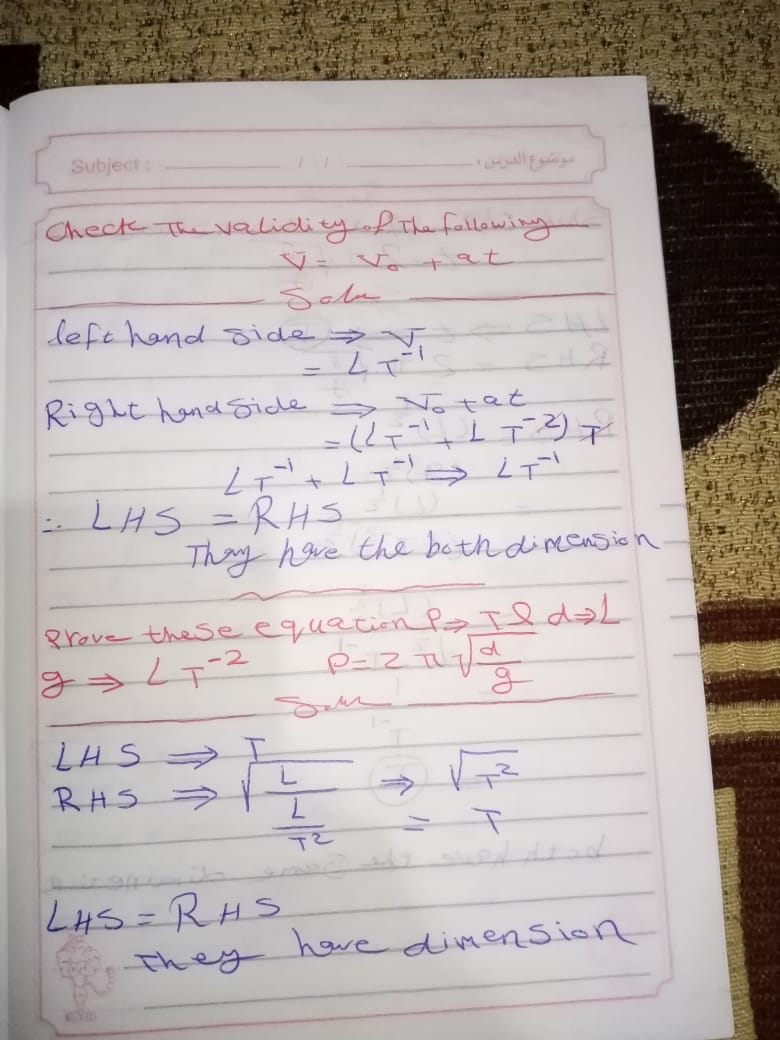 Subject : / / موضوع الدرس :
Check The validity of The following
V = V₀ + at
Soln
left hand side ⇒ V
= LT⁻¹
Right hand side ⇒ V₀ + at
= (LT⁻¹ + LT⁻²) T
LT⁻¹ + LT⁻¹ ⇒ LT⁻¹
∴ LHS = RHS
They have the both dimension
Prove these equation P ⇒ T & d ⇒ L
g ⇒ LT⁻² P = 2π√(d/g)
Soln
LHS ⇒ T
RHS ⇒ √(L/(L/T²)) ⇒ √T²
= T
LHS = RHS
They have dimension